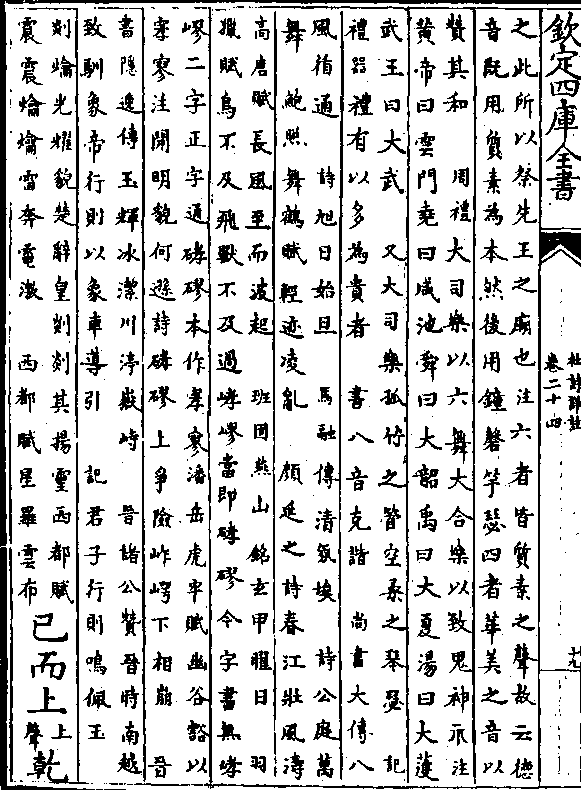 欽定四庫全書
杜詩詳註
卷二十四
十九
之此所以祭先王之廟也注六者皆質素之聲故云德
音既用質素為本然後用鐘磬竽瑟四者華美之音以
贊其和 周禮大司樂以六舞大合樂以致鬼神示注
黃帝曰雲門堯曰咸池舜曰大韶禹曰大夏湯曰大濩
武王曰大武 又大司樂孤竹之管空桑之琴瑟 記
禮器禮有以多為貴者 書八音克諧 尚書大傳八
風循通 詩旭日始旦 馬融傳清氛埃 詩公庭萬
舞 鮑照舞鶴賦輕迹凌亂 顏延之詩春江壯風濤
高唐賦長風至而波起 班固燕山銘玄甲耀日 羽
獵賦鳥不及飛獸不及過 嵺當即硣磟今字書無
嵺二字正字通硣磟本作 寥潘岳虎牢賦幽谷豁以
寥注開明貌何遜詩硣磟上爭險岝崿下相崩 晉
書隱逸傳玉輝冰潔川渟嶽峙 晉諸公贊晉時南越
致馴象帝行則以象車導引 記君子行則鳴佩玉
剡爚光耀貌楚辭皇剡剡其揚靈西都賦
震震爚爚雷奔電激 西都賦星羅雲布
已而上上聲乾